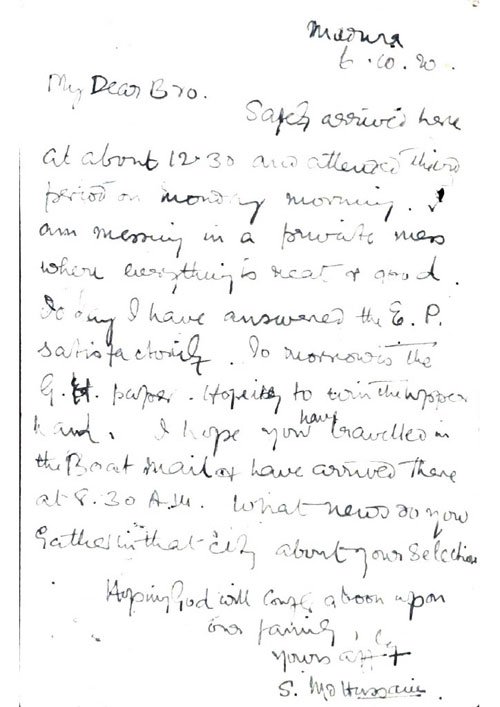 Madura
6.10.20.
My Dear Bro.
Safely arrived here
at about 12.30 and attended third
period on Monday morning. I
am messing in a private mess
where everything is neat & good.
To day I have answered the E. P.
satisfactorily. To morrow is the
G. H. paper. Hoping to win the upper
hand. I hope you have travelled in
the Boat Mail & have arrived there
at 8.30 A.M. What news do you
gather in that city about your Selection
Hoping God will confer a boon upon
our family,
yours afft
S. Md Hussain.